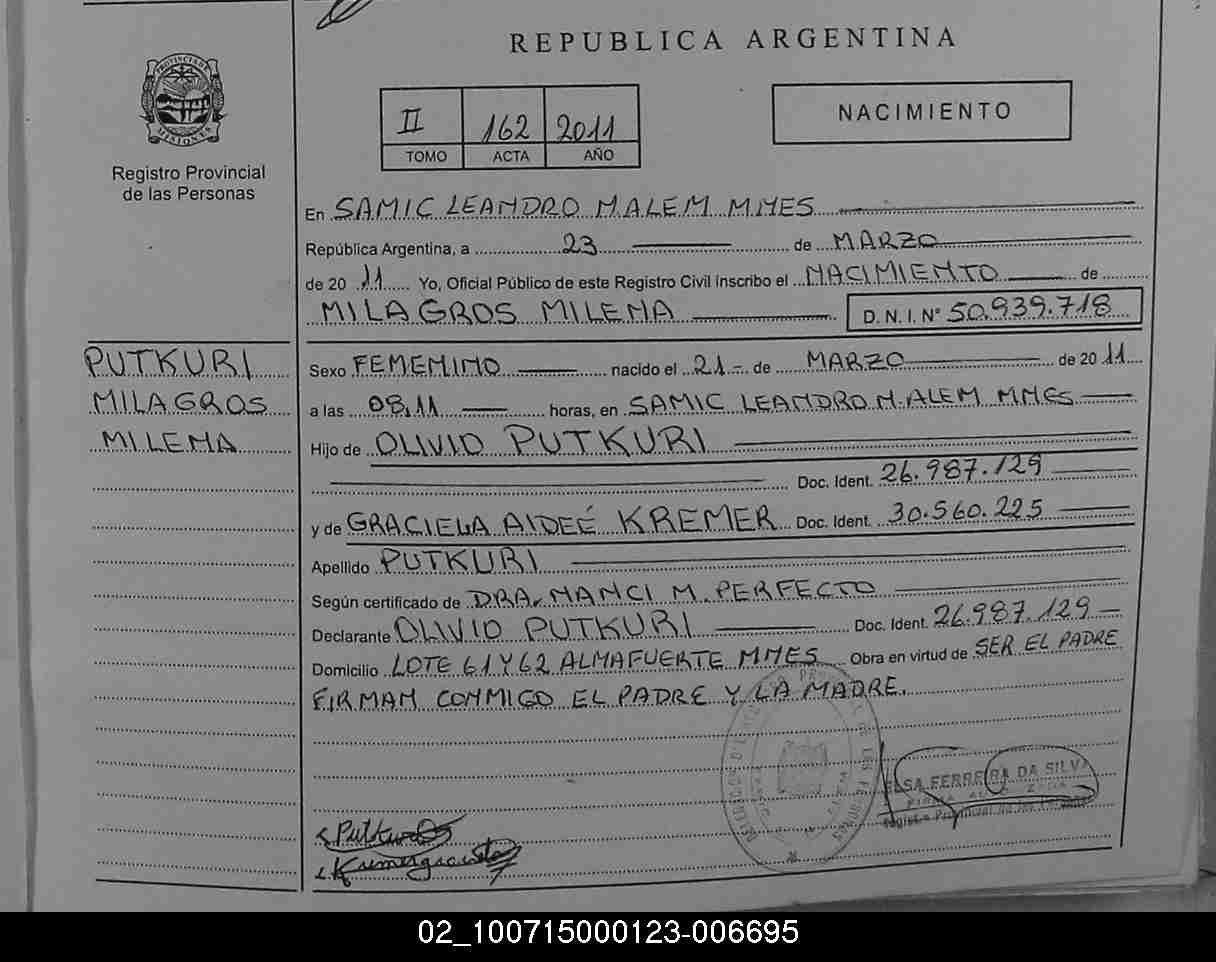 REPUBLICA ARGENTINA
PROVINCIA DE MISIONES
Registro Provincial
de las Personas
II 162 2011
TOMO ACTA AÑO
NACIMIENTO
En SAMIC LEANDRO N.ALEM MNES
República Argentina, a 23 de MARZO
de 20 11 Yo, Oficial Público de este Registro Civil inscribo el NACIMIENTO de
MILAGROS MILENA D.N.I. N° 50.939.718
PUTKURI
MILAGROS
MILENA
Sexo FEMENINO nacido el 21.- de MARZO de 20 11
a las 08,11 horas, en SAMIC LEANDRO N.ALEM MNES
Hijo de OLIVIO PUTKURI
Doc. Ident. 26.987.129
y de GRACIELA AIDEÉ KREMER Doc. Ident. 30.560.225
Apellido PUTKURI
Según certificado de DRA. NANCI M. PERFECTO
Declarante OLIVIO PUTKURI Doc. Ident. 26.987.129
Domicilio LOTE 61 Y 62 ALMAFUERTE MNES Obra en virtud de SER EL PADRE
FIRMAN CONMIGO EL PADRE Y LA MADRE.
ELSA FERREIRA DA SILVA
Registro Provincial de las Personas
02_100715000123-006695